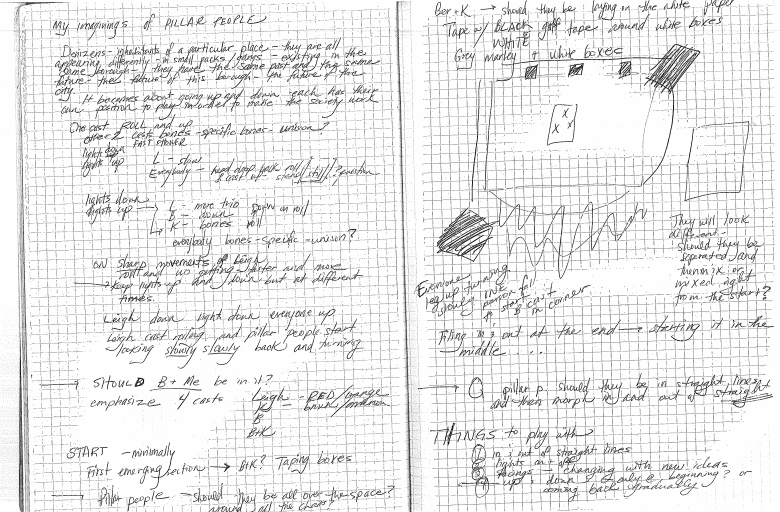 My imaginings of PILLAR PEOPLE
Denizens - inhabitants of a particular place - they are all
appearing differently - in small packs / gangs - existing in the
same borough - they have the same past and the same
future - the future of this borough - the future of the
city.
It becomes about going up and down - each has their
own position to play in order to make the society work
One cast ROLL and up
other 2 casts bones - specific bones - unison?
lights down FAST SLOWER
lights up
L - slow
Everybody - head drop back roll
cast up - stand still? question
lights down
lights up → L - more trio
B - down
K - bones roll
everybody bones - specific - unison?
ON sharp movements of Leigh
roll and up getting faster and more
→ keep lights up and down but at different
times.
Leigh down light down everyone up
Leigh cast rolling and pillar people start
looking slowly slowly back and turning
→ SHOULD B + Me be in it?
emphasize 4 casts
Leigh - RED/orange
K - brown/
B
B+K
START - minimally
First emerging section → B+K? Taping boxes
→ Pillar people - should they be all over the space?
around all the chairs
Ber + K → should they be laying in the white paper
Tape w/ BLACK gaff tape around white boxes
WHITE
Grey marley + white boxes
x x x
They will look
different -
should they be
separated and
then mix or
mixed right
from the start?
Everyone
leg up turning
slowly
to start
B in corner
Filing in & out at the end → starting it in the
middle ....
→ pillar p should they be in straight lines
and then morph in and out of straight
THINGS to play with
① in & out of straight lines
② lights on + off
③ facings - changing with new ideas
④ up & down - only @ beginning? or
coming back up gradually